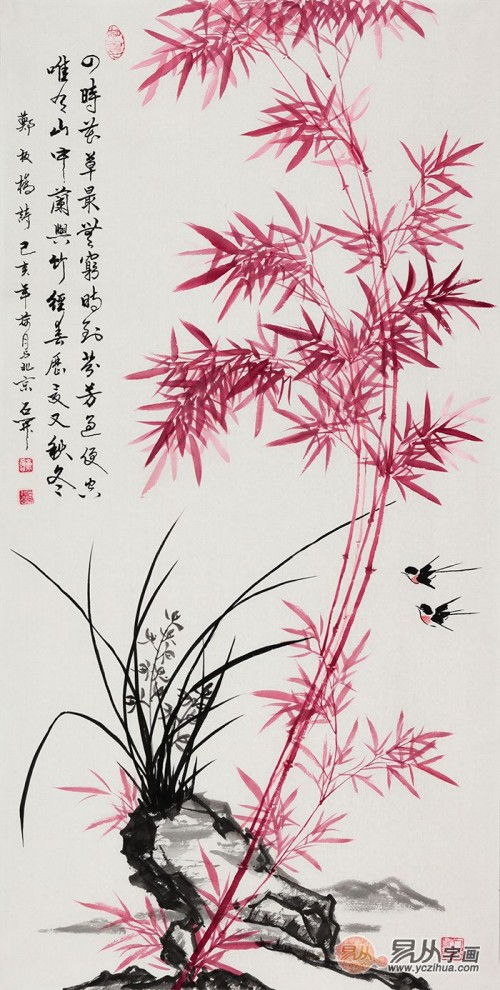 四時花草最無窮時到芬芳過便空
唯有山中蘭與竹經春歷夏又秋冬
鄭板橋詩己亥年月於北京石
易从字画
www.yczihua.com